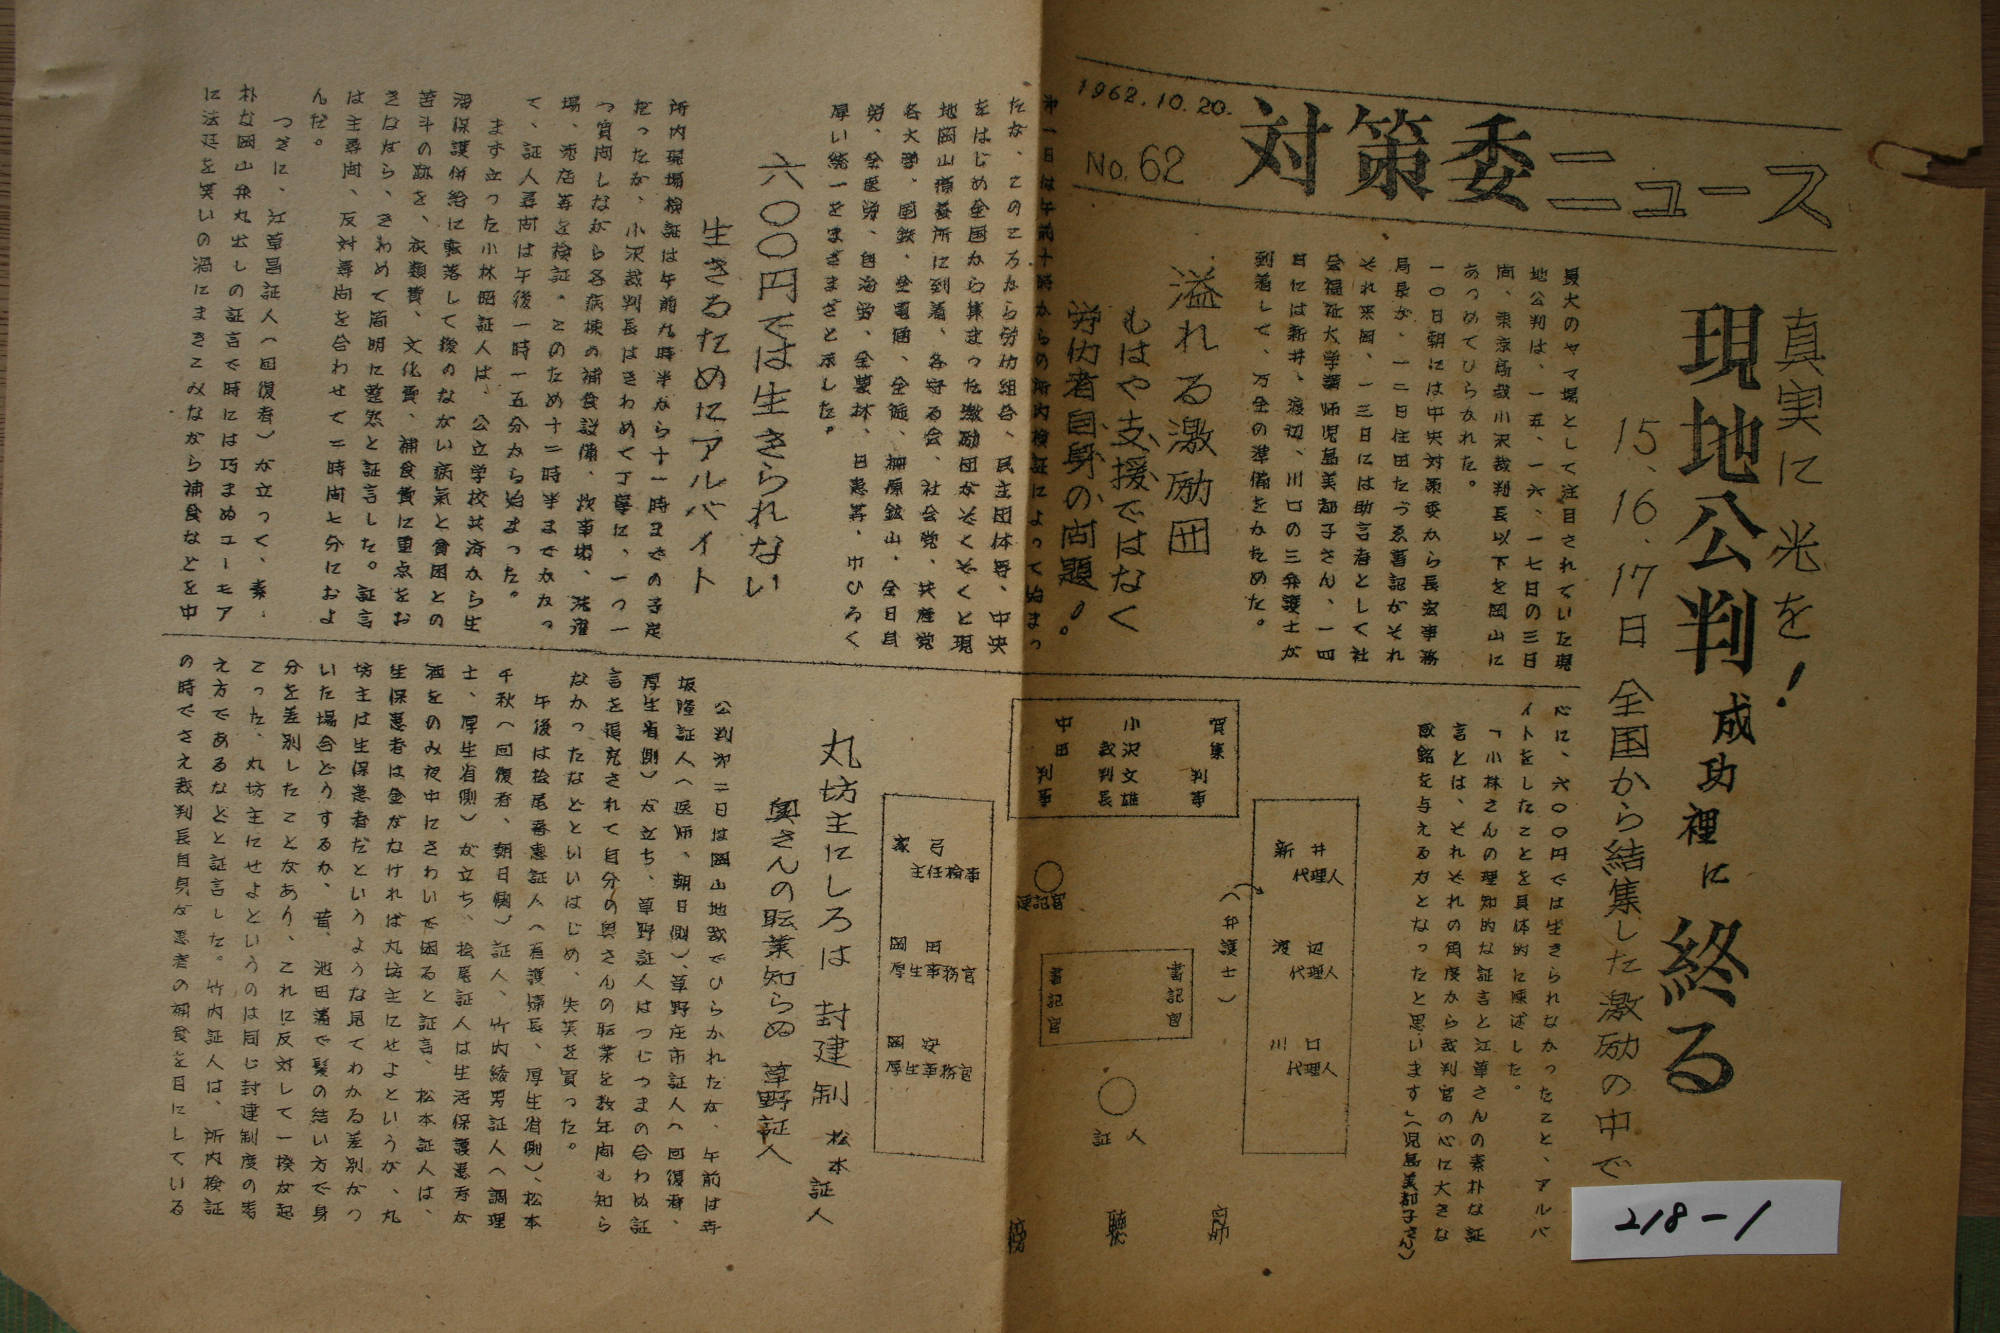 1962.10.20.
No.62
対策委ニュース
真実に光を!
現地公判成功裡に終る
15、16、17日 全国から結集した激励の中で
最大のヤマ場として注目されていた現
地公判は、一五、一六、一七日の三日
間、東京高裁小沢裁判長以下を岡山に
あつめてひらかれた。
一〇日朝には中央対策委から長宏事務
局長が、一二日住田たづゑ書記がそれ
それ来岡、一三日には助言者として社
会福祉大学講師児島美都子さん、一四
日には新井、渡辺、川口の三弁護士が
到着して、万全の準備をかためた。
溢れる激励団
もはや支援ではなく
労仂者自身の問題!。
第一日は午前十時からの所内検証によって始まっ
たが、このころから労仂組合、民主団体等、中央
をはじめ全国から集まった激励団がぞくぞくと現
地岡山療養所に到着、各守る会、社会党、共産党
各大学、国鉄、全電通、全逓、柵原鉱山、全日自
労、全医労、自治労、全農林、日患等、巾ひろく
厚い統一をまざまざと示した。
六〇〇円では生きられない
生きるためにアルバイト
所内現場検証は午前九時半から十一時までの予定
だったが、小沢裁判長はきわめて丁寧に、一つ一
つ質問しながら各病棟の補食設備、炊事場、洗濯
場、売店等を検証。このため十二時半までかかっ
て、証人尋問は午後一時一五分から始まった。
まず立った小林昭証人は、公立学校共済から生
活保護併給に転落して後のながい病気と貧困との
苦斗の跡を、衣類費、文化費、補食費に重点をお
きながら、きわめて簡明に整然と証言した。証言
は主尋問、反対尋問を合わせて二時間七分におよ
んだ。
つぎに、江草昌証人(回復者)が立って、素
朴な岡山弁丸出しの証言で時には巧まぬユーモア
に法廷を笑いの渦にまきこみながら補食などを中
心に、六〇〇円では生きられなかったこと、アルバ
イトをしたことを具体的に陳述した。
「小林さんの理知的な証言と江草さんの素朴な証
言とは、それぞれの角度から裁判官の心に大きな
感銘を与える力となったと思います」(児島美都子さん)
賀集 判事
小沢文雄 裁判長
中田 判事
新井 代理人
渡辺 代理人
川口 代理人
(弁護士)
速記官
書記官
書記官
証人
家弓 主任検事
岡田 厚生事務官
岡安 厚生事務官
傍聴席
丸坊主にしろは 封建制 松本証人
奥さんの転業知らぬ 草野証人
公判第二日は岡山地裁でひらかれたが、午前は寺
坂隆証人(医師、朝日側)、草野庄市証人(回復者、
厚生省側)が立ち、草野証人はつじつまの合わぬ証
言を追究されて自分の奥さんの転業を数年間も知ら
なかったなどといいはじめ、失笑を買った。
午後は桧尾春恵証人(看護婦長、厚生省側)、松本
千秋(回復者、朝日側)証人、竹内綾男証人(調理
士、厚生省側)が立ち、桧尾証人は生活保護患者が
酒をのみ夜中にさわいで困ると証言、松本証人は、
生保患者は金がなければ丸坊主にせよというが、丸
坊主は生保患者だというような見てわかる差別がつ
いた場合どうするか、昔、池田藩で髪の結い方で身
分を差別したことがあり、これに反対して一揆が起
こった、丸坊主にせよというのは同じ封建制度の考
え方であるなどと証言した。竹内証人は、所内検証
の時でさえ裁判長自身が患者の補食を目にしている
218-1